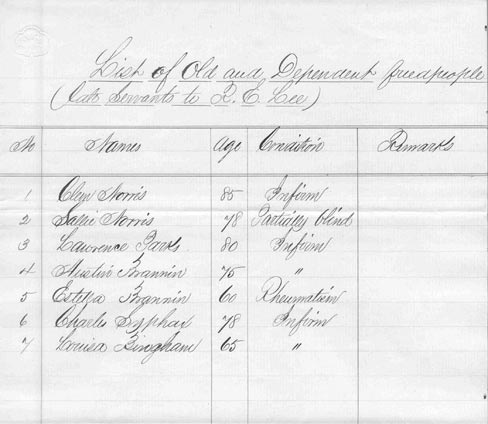 List of Old and Dependent freedpeople
(late Servants to R. E. Lee)
No Names Age Condition Remarks
1 Norris 85 Infirm
2 Sallie Norris 78 Partially blind
3 Lawrence Parks 80 Infirm
4 Austin Brannin 75 "
5 Estella Brannin 60 Rheumatism
6 Charles Syphax 78 Infirm
7 Louisa Bingham 65 "